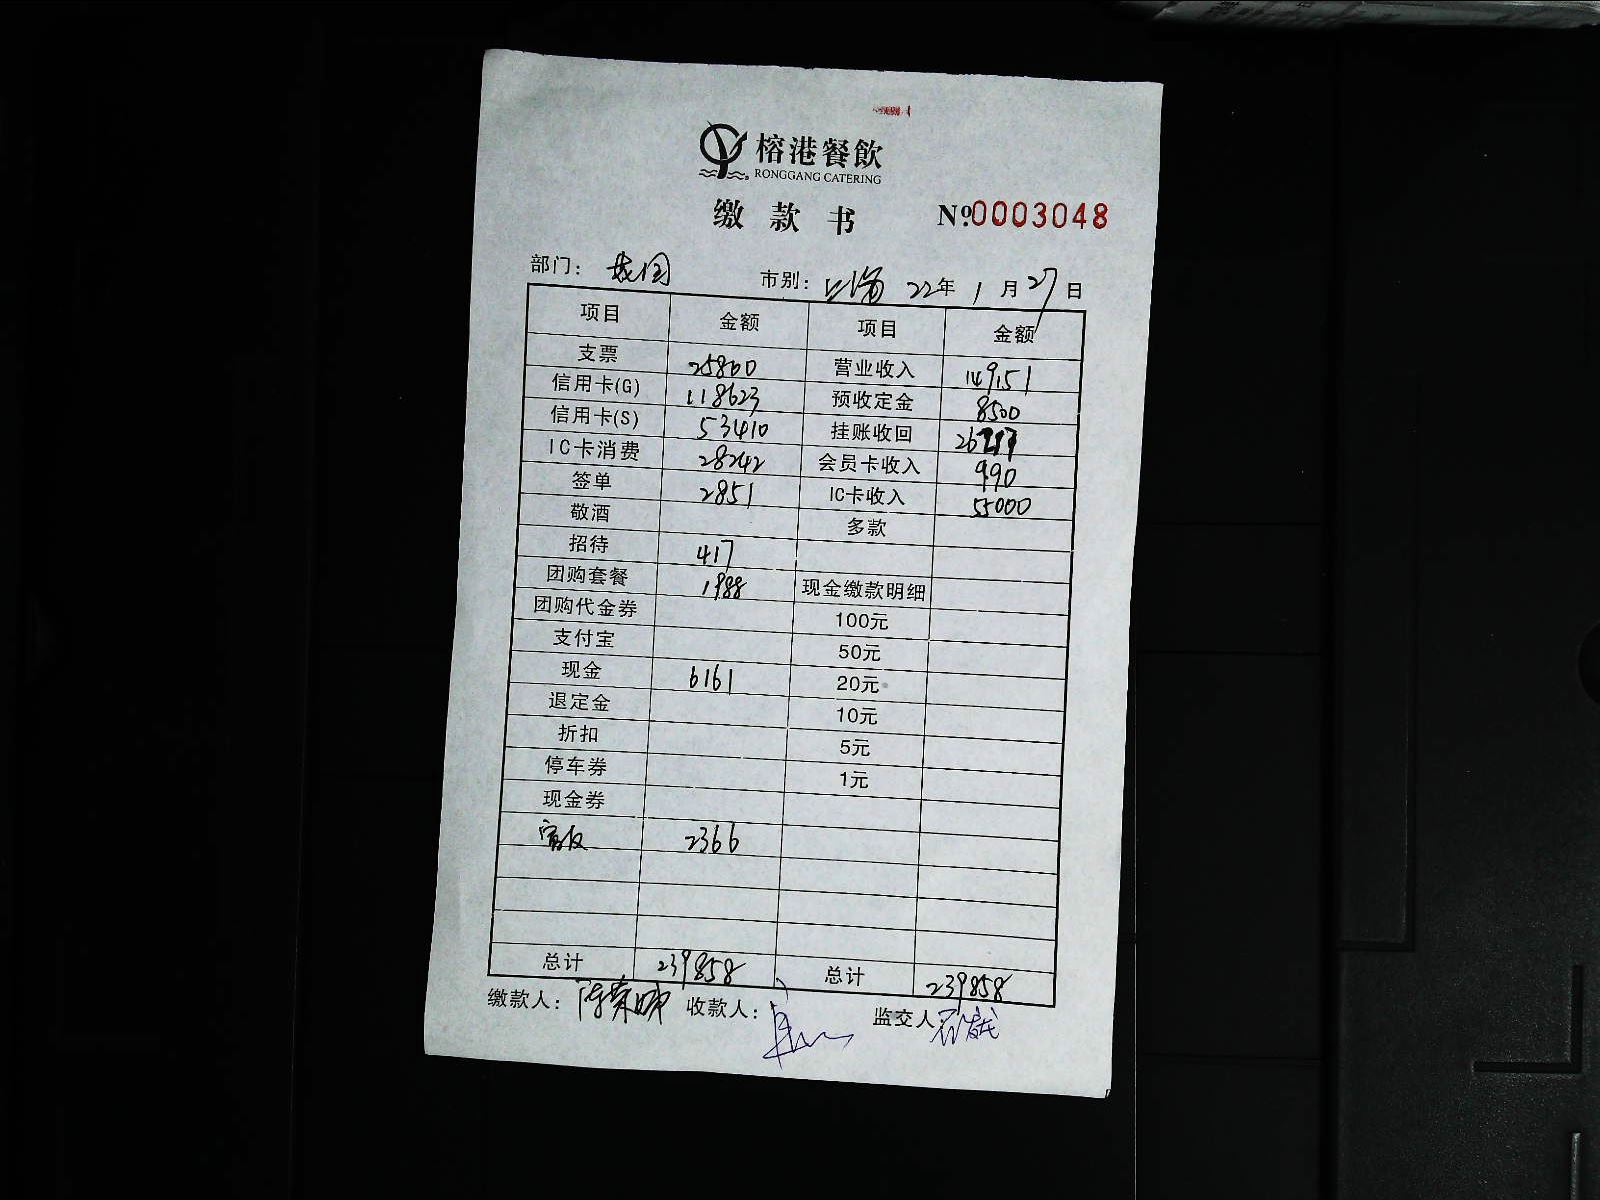 榕港餐飲
RONGGANG CATERING
缴款书 №0003048
部门： 市别：上海 22年1月27日
项目 金额 项目 金额
支票 25800 营业收入 149151
信用卡(G) 118623 预收定金 8500
信用卡(S) 53410 挂账收回 26217
IC卡消费 28242 会员卡收入 990
签单 2851 IC卡收入 55000
敬酒 多款
招待 417
团购套餐 1988 现金缴款明细
团购代金券 100元
支付宝 50元
现金 6161 20元
退定金 10元
折扣 5元
停车券 1元
现金券
2366
总计 239858 总计 239858
缴款人： 收款人： 监交人：